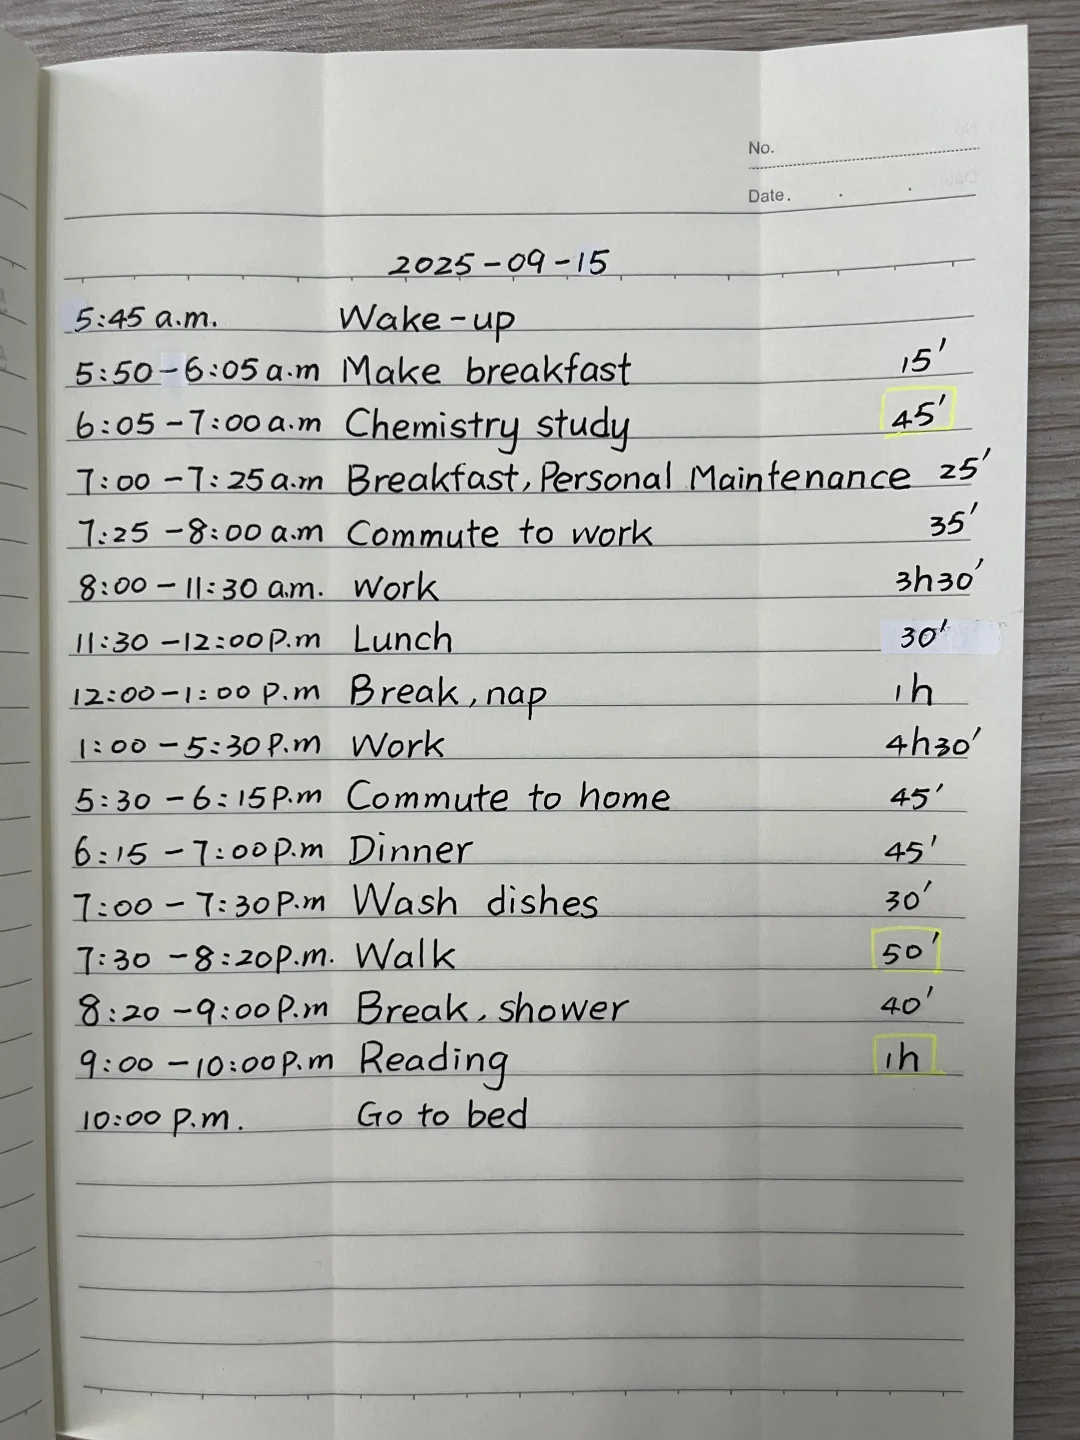 No.
Date. . .
2025-09-15
5:45 a.m. Wake-up
5:50-6:05 a.m Make breakfast 15'
6:05-7:00 a.m Chemistry study 45'
7:00-7:25 a.m Breakfast, Personal Maintenance 25'
7:25-8:00 a.m Commute to work 35'
8:00-11:30 a.m. Work 3h30'
11:30-12:00 P.m Lunch 30'
12:00-1:00 P.m Break, nap 1h
1:00-5:30 P.m Work 4h30'
5:30-6:15 P.m Commute to home 45'
6:15-7:00 P.m Dinner 45'
7:00-7:30 P.m Wash dishes 30'
7:30-8:20 P.m. Walk 50'
8:20-9:00 P.m Break, shower 40'
9:00-10:00 P.m Reading 1h
10:00 P.m. Go to bed